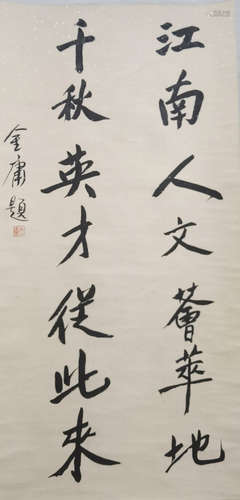 江南人文薈萃地
千秋英才從此來
金庸題